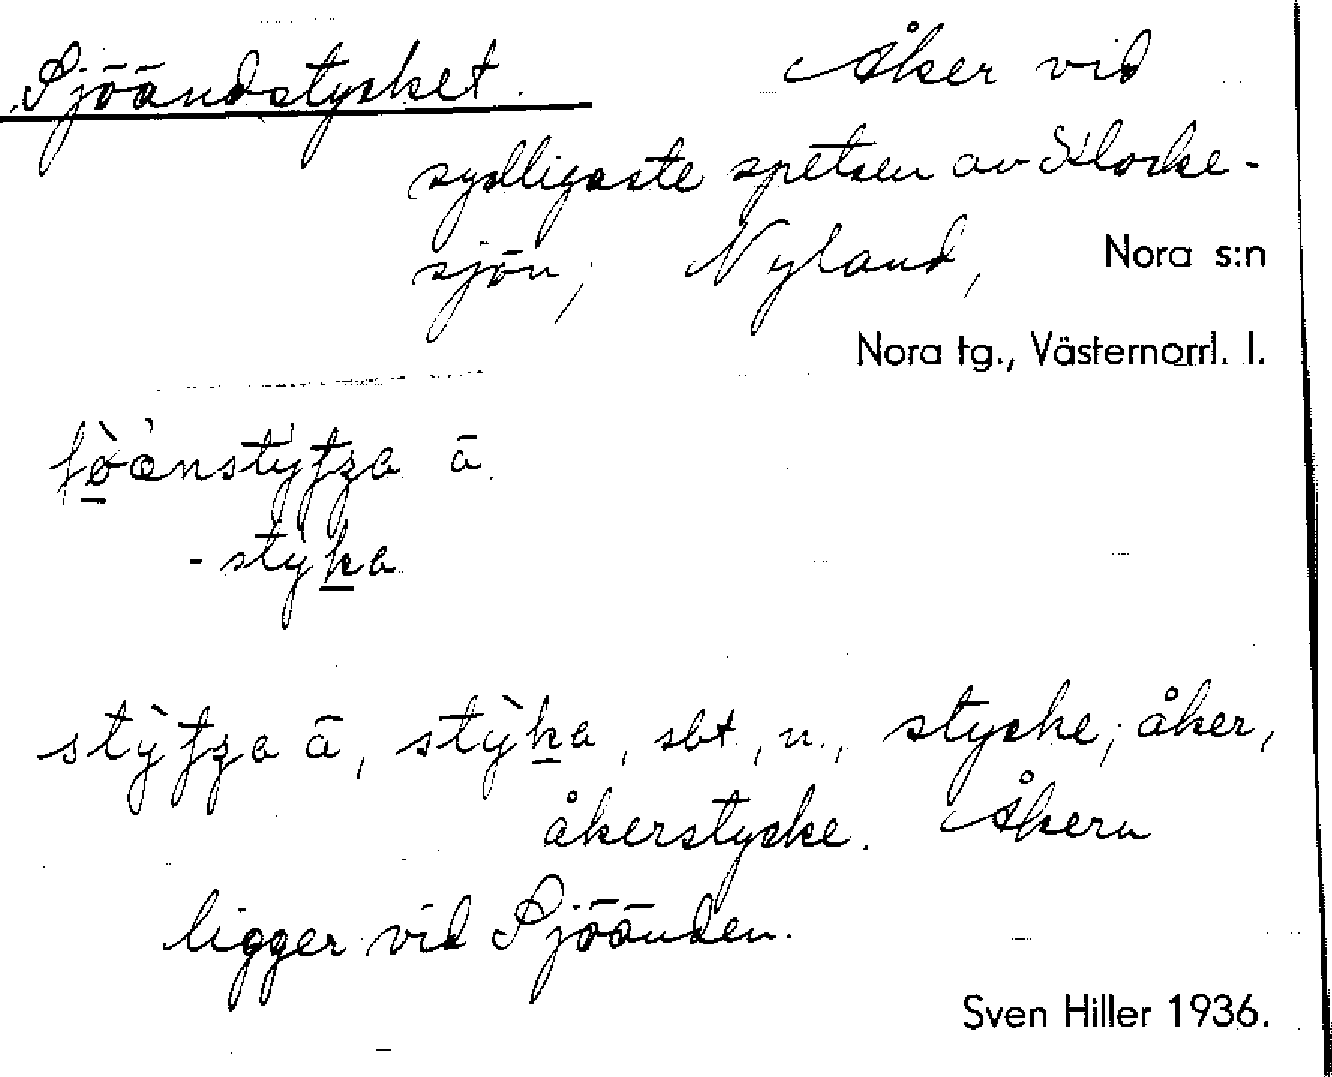 Sjöändstycket. Åker vid
sydligaste spetsen av Klocke-
sjön; Nyland, Nora s:n
Nora tg., Västernorrl. l.
ä
ä, sbt., n., stycke; åker,
åkerstycke. Åkern
ligger vid Sjöänden.
Sven Hiller 1936.